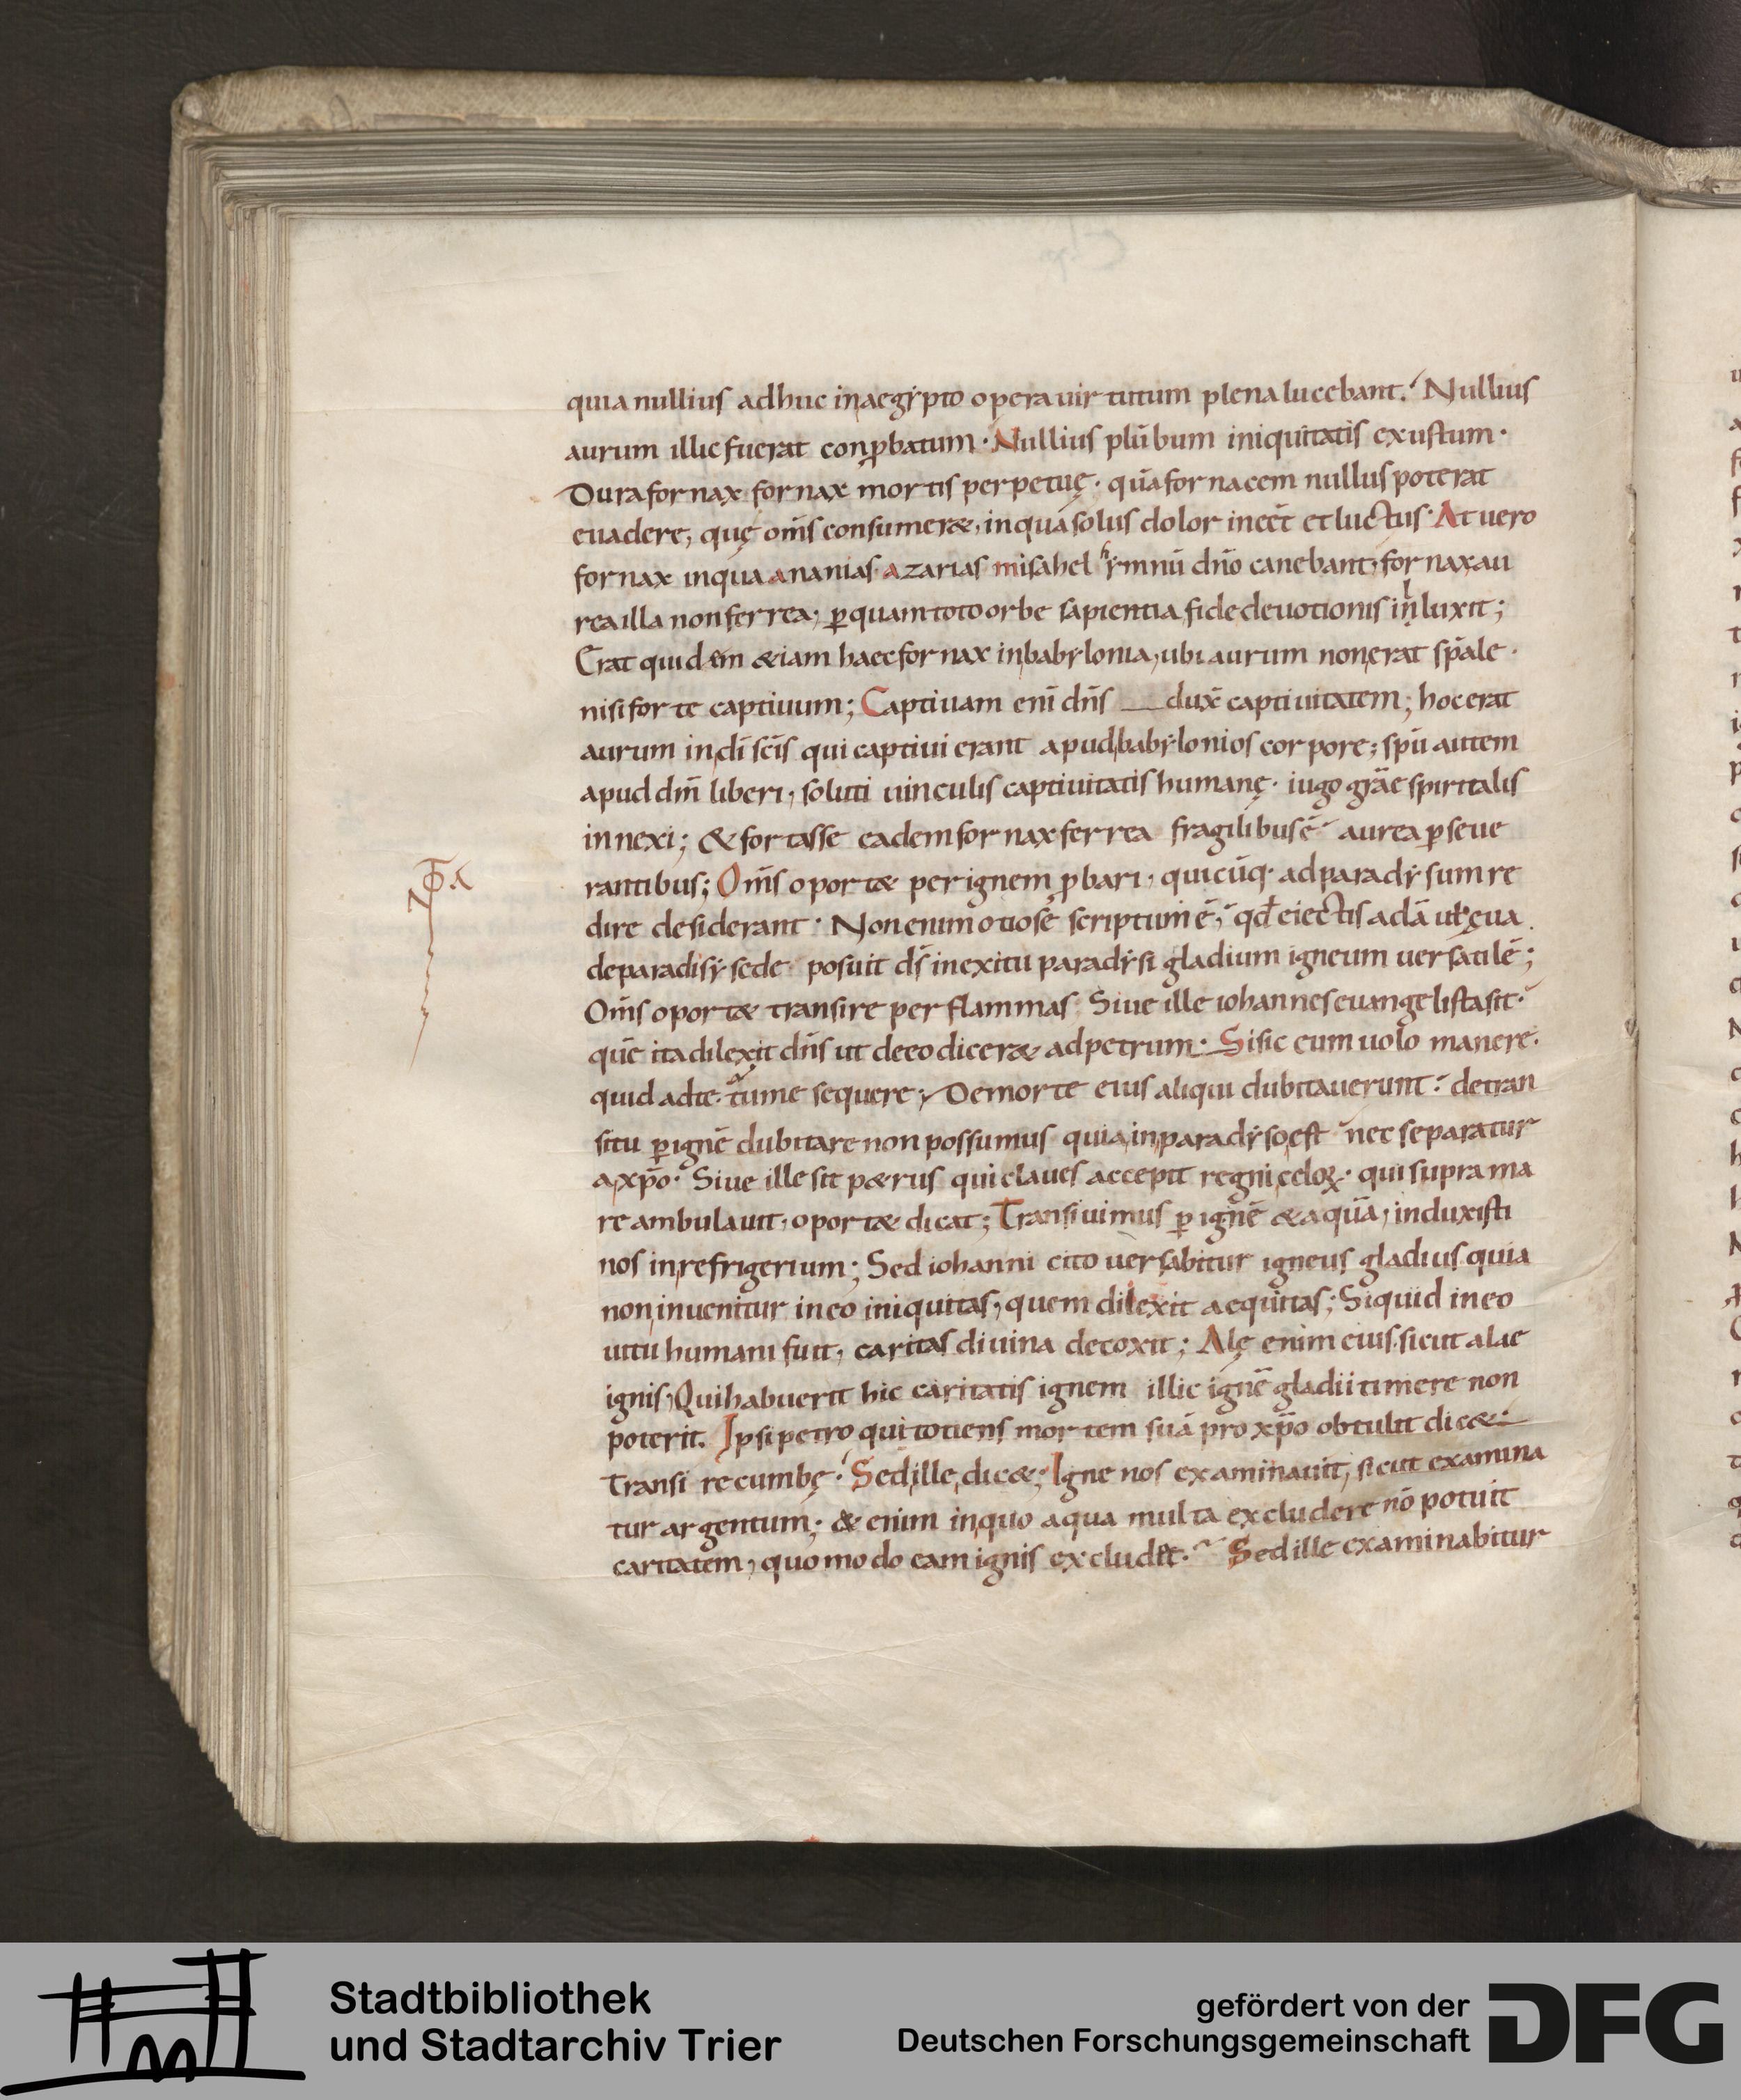 quia nullius adhuc in aegẏpto opera uirtutum plena lucebant. Nullius
aurum illic fuerat conp̱batum · Nullius plūbum iniquitatis exustum ·
Dura fornax fornax mortis perpetuę · quā fornacem nullus poterat
euadere, quę om̄s consumer&, in qua solus dolor ineēt et luctus · At uero
fornax in qua ananias azarias misahel hẏmnū dn̄o canebant, fornax au
rea illa non ferrea, ꝑ quam toto orbe sapientia fide deuotionis inluxit;
Erat quidem &iam haec fornax in babẏlonia, ubi aurum non erat sp̄ale ·
nisi forte captiuum; Captiuam eni͞ dn̄s dux̄ captiuitatem; hoc erat
aurum in di͞ sc̄is qui captiui erant apud babẏlonios corpore; sp̄u autem
apud dm̄ liberi, soluti uinculis captiuitatis humanę · iugo grāe spiritalis
innexi; & fortasse eadem fornax ferrea fragilibus ē aurea ꝑseue
rantibus; Om̄s oport& per ignem ꝓbari, quicūq· ad paradẏsum re
dire desiderant · Non enim otiose scriptum ē, qd̄ eiectis adā & eua
de paradisẏ sede posuit dš in exitu paradẏsi gladium igneum uersatilē;
Om̄s oport& transire per flammas Siue ille iohannes euangelista sit ·
quē ita dilexit dn̄s ut de eo dicer& ad petrum · Si sic eum uolo manere ·
quid ad te · tu me sequere; De morte eius aliqui dubitauerunt · de tran
situ ꝑ ignē dubitare non possumus quia in paradẏso est nec separatur
a xp̄o · Siue ille sit p&rus qui claues accepit regni celoꝝ · qui supra ma
re ambulauit, oport& dicat; Transiuimus ꝑ ignē & aquā, induxisti
nos in refrigerium; Sed iohanni cito uersabitur igneus gladius quia
non inuenitur in eo iniquitas, quem dilexit aequitas; Si quid in eo
uitii humani fuit, caritas diuina decoxit; Alę enim eius sicut alae
ignis, Qui habuerit hic caritatis ignem illic ignē gladii timere non
poterit. Ipsi petro qui totiens mortem suā pro xp̄o obtulit dic& ·
Transi recumbę · Sed ille dic&; Igne nos examinauit, sicut examina
tur argentum; & enim in quo aqua multa excludere nō potuit
caritatem, quomodo eam ignis excludet · Sed ille examinabitur
Stadtbibliothek
und Stadtarchiv Trier
gefördert von der
Deutschen Forschungsgemeinschaft
DFG